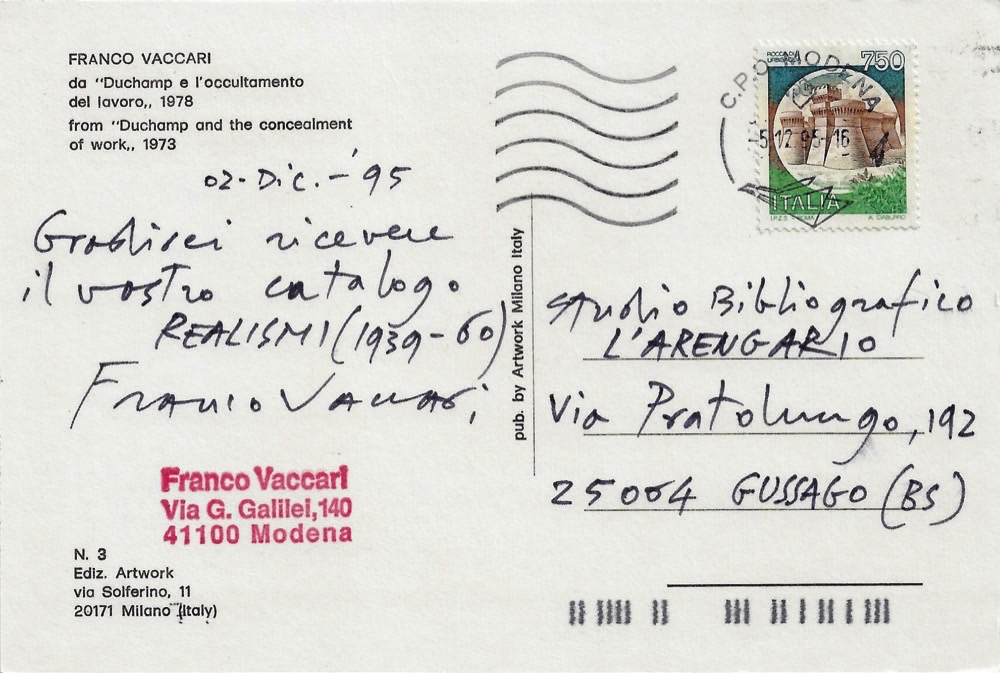 FRANCO VACCARI
da "Duchamp e l'occultamento
del lavoro,, 1978
from "Duchamp and the concealment
of work,, 1973
02-Dic.-'95
Gradirei ricevere
il vostro catalogo
REALISMI (1939-60)
Franco Vaccari
Franco Vaccari
Via G. Galilei,140
41100 Modena
N. 3
Ediz. Artwork
via Solferino, 11
20171 Milano (Italy)
pub. by Artwork Milano Italy
ROCCA DI
URBISAGLIA
750
ITALIA
I.P.Z.S. - ROMA
A. CIABURRO
C.P.O. MODENA
5.12.95-16
Studio Bibliografico
L'ARENGARIO
Via Pratolungo, 192
25064 GUSSAGO (BS)